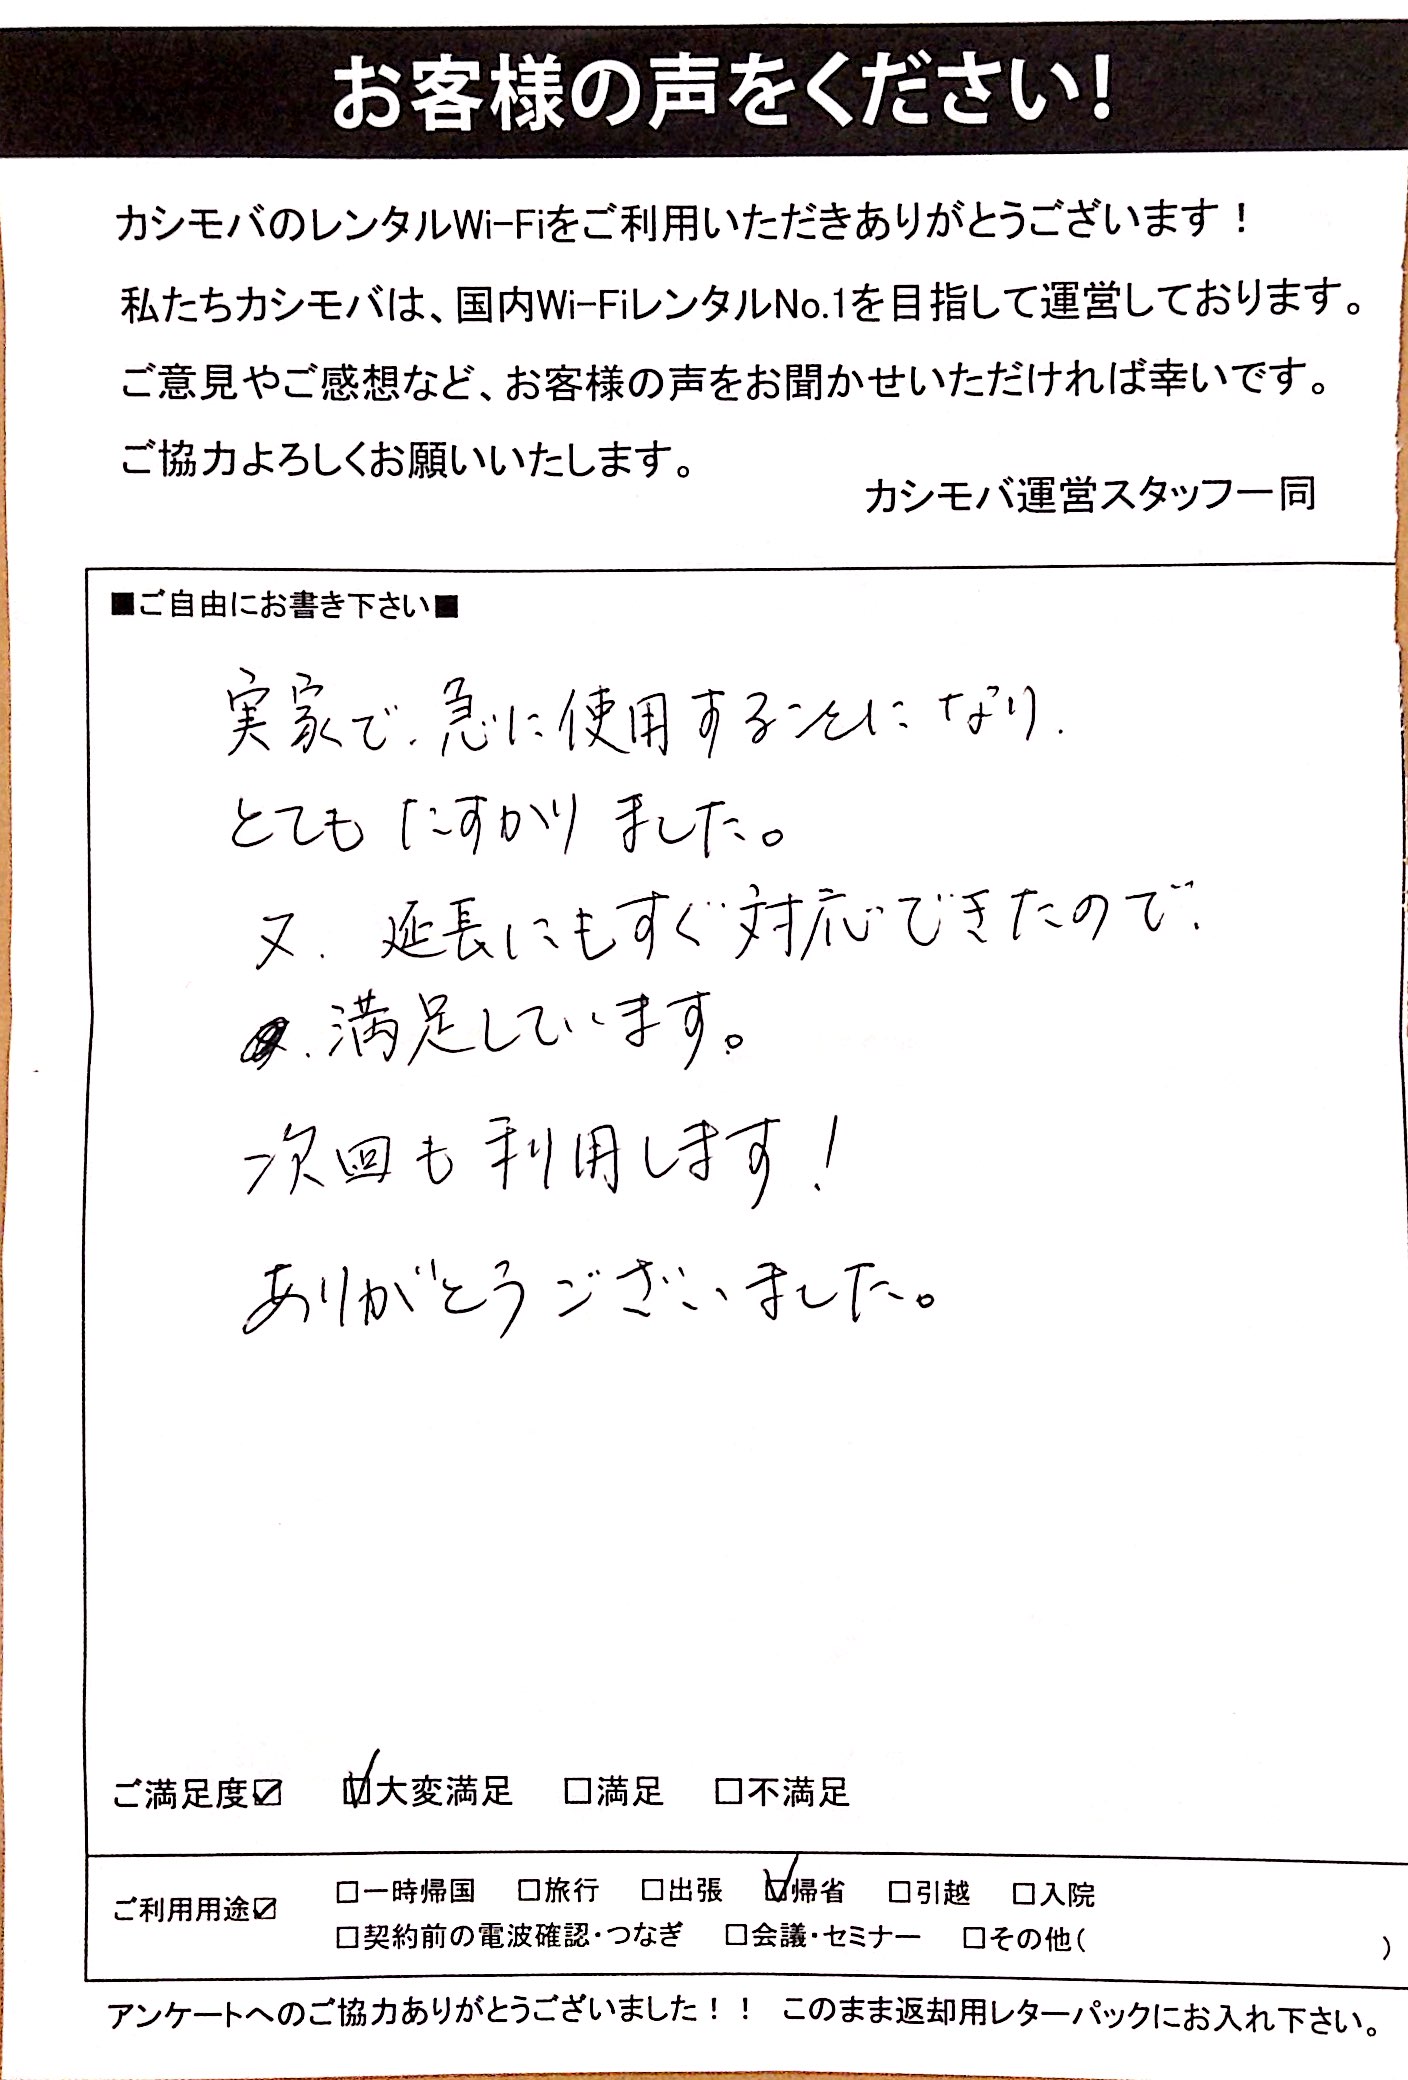 お客様の声をください!
カシモバのレンタルWi-Fiをご利用いただきありがとうございます！
私たちカシモバは、国内Wi-FiレンタルNo.1を目指して運営しております。
ご意見やご感想など、お客様の声をお聞かせいただければ幸いです。
ご協力よろしくお願いいたします。
カシモバ運営スタッフ一同
■ご自由にお書き下さい■
実家で、急に使用することになり、
とてもたすかりました。
又、延長にもすぐ対応できたので、
満足しています。
次回も利用します！
ありがとうございました。
ご満足度☑ ☑大変満足 □満足 □不満足
ご利用用途☑ □一時帰国 □旅行 □出張 ☑帰省 □引越 □入院
□契約前の電波確認・つなぎ □会議・セミナー □その他（ ）
アンケートへのご協力ありがとうございました！！ このまま返却用レターパックにお入れ下さい。